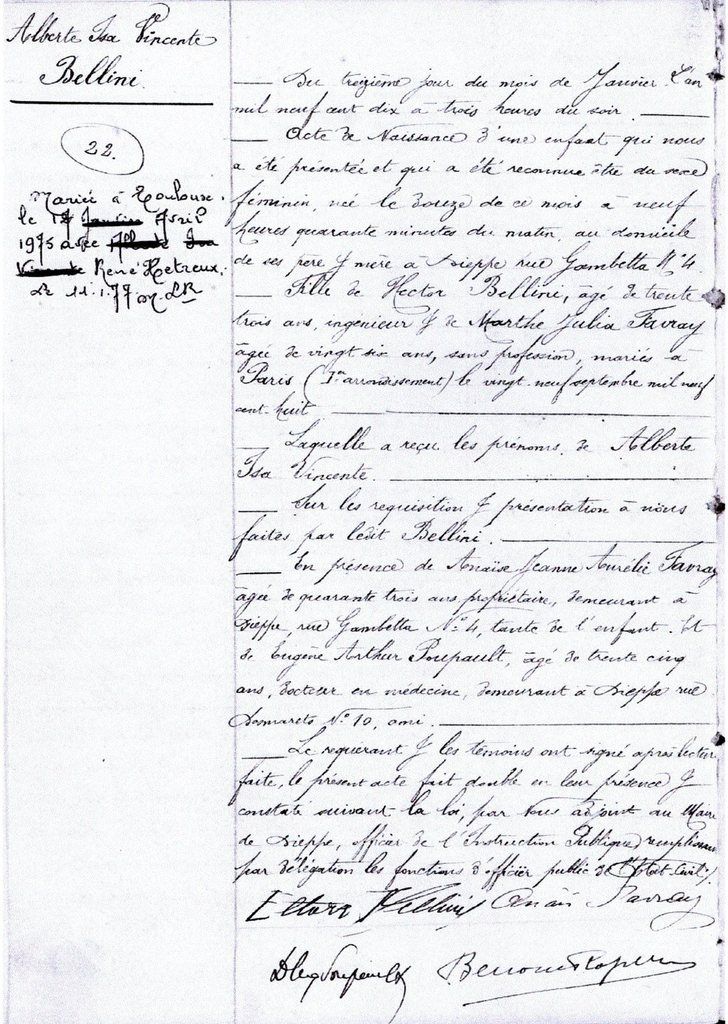 Alberte Isa Vincente
Bellini.
22.
Mariée à Toulouse
le 17 Janvier Avril
1975 avec Alberte Isa
Vincente René Hetreux.
Le 11.1.77
Du treizième jour du mois de Janvier L'an
mil neuf cent dix à trois heures du soir.
Acte de Naissance d'une enfant qui nous
a été présentée et qui a été reconnue être du sexe
féminin, née le douze de ce mois à neuf
heures quarante minutes du matin, au domicile
de ses père & mère à Dieppe rue Gambetta N° 4.
Fille de Hector Bellini, âgé de trente
trois ans, ingénieur & de Marthe Julia Favray
âgée de vingt six ans, sans profession, mariés à
Paris (1er arrondissement) le vingt neuf septembre mil neuf
cent huit
Laquelle a reçu les prénoms de Alberte
Isa Vincente.
Sur les requisition & présentation à nous
faites par ledit Bellini.
En présence de Anaïse Jeanne Aurélie Favray
âgée de quarante trois ans propriétaire, demeurant à
Dieppe rue Gambetta N° 4, tante de l'enfant. Et
de Eugène Arthur Poupault, âgé de trente cinq
ans, docteur en médecine, demeurant à Dieppe rue
Desmarets N° 10, ami.
Le requérant & les témoins ont signé après lecture
faite, le présent acte fait double en leur présence &
constaté suivant la loi, par Nous adjoint au Maire
de Dieppe, officier de l'Instruction Publique remplissant
par délégation les fonctions d'officier public de l'Etat Civil.
Ettore Bellini Anaïs Favray